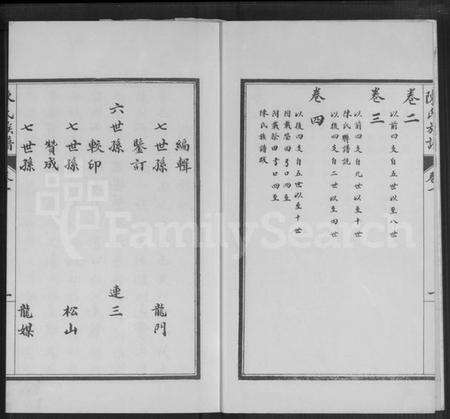 陳氏族譜
卷一
卷二
以前四支自五世以至八世
卷三
以前四支自九世以至十世
陳氏聯譜說
以後四支自二世以至四世
卷四
以後四支自五世以至十世
附載祭田弓口四至
附載祭田弓口四至
陳氏族譜跋
編輯
七世孫 龍門
鑒訂
六世孫 連三
校印
七世孫 松山
贊成
七世孫 龍媒
氏族譜
FamilySearch